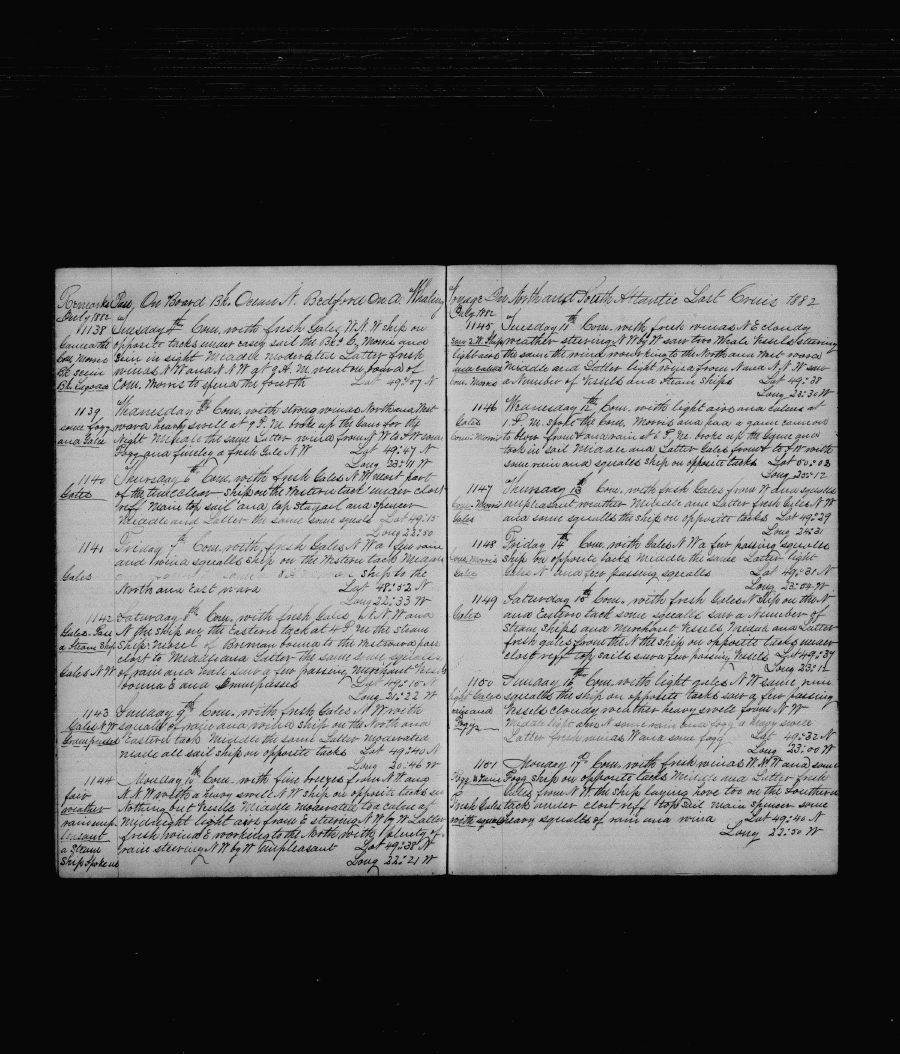 Remarks Pass. On Board Bk. Ocean N. Bedford On A Whaling
July 1882
1138 Tuesday 4th Com. with fresh Gales N.N.W ship on
opposite tacks under easy sail the Bk C. Morris and
in sight Middle moderated Latter fresh
winds N.W and N.N.W at 9 A.M. went on board of
Com. Morris to spend the fourth Lat 49:07 N
1139 Wednesday 5th Com. with strong winds North and West
ward heavy swell at 9 P.M. broke up the Gam for the
Night Middle the same Latter wind from N.W to S.W some
Fogg and finely a fresh Gale N.W Lat 49:47 N
some fogg
and Gales
Long 23:11 W
1140 Thursday 6th Com. with fresh Gales N.W most part
of the time clear Ship on the Western tack under clost
reff Main top sail and top staysail and spencer
Middle and Latter the same some squals Lat 49:15
Gales
Long 22:50
1141 Friday 7th Com. with fresh Gales N.W a few rain
and wind squalls ship on the Western tack Middle
ship to the
North and East ward Lat 48:52 N
Gales
Long 22:33 W
1142 Saturday 8th Com. with fresh Gales N.W and
N the ship on the Eastern tack at 4 P.M the steam
ship Nessel of Breman bound to the Westward pass
clost to Middle and Latter the same some squalls
of rain and hail saw a few passing Merchant Vessels
bound E and Lat 49:10 N
Gales Pass
a Steam Ship
Gales N.W
Long 21:22 W
1143 Sunday 9th Com. with fresh Gales N.W with
squalls of rain and wind ship on the North and
Eastern tack Middle the same Latter moderated
made all sail ship on opposite tacks Lat 49:40 N
Gales N.W
Long 20:46 W
1144 Monday 10th Com. with fine breezes from N.W and
N.N.W with a heavy swell N.W ship on opposite tacks
Nothing but Vessels Middle moderated too calm at
Mydnight light airs from E steering N.W by W Latter
fresh wind E working to the North with plenty of
rain steering N.W by W Unpleasant Lat 49:38 N
fair
weather
a Steam
Ship Spoke us
Long 22:21 W
Voyage In North and South Atlantic Last Cruis 1882
July 1882
1145 Tuesday 11th Com. with fresh winds N.E cloudy
weather steering N.W by W saw two Whale Vessels steering
the same the wind working to the North and West ward
Middle and Latter light winds from N and N.N.W saw
a Number of Vessels and Steam ships Lat 49:38
light airs
and calms
Com. Morris
Long 23:30 W
1146 Wednesday 12th Com. with light airs and calms at
1 P.M. spoke the Com. Morris and had a game
to blow from and rain at 6 P.M. broke up the Game and
tack in sail Middle and Latter Gales from to S.W with
some rain and squalls ship on opposite tacks Lat 50:03
Gales
Com. Morris
Long 25:12
1147 Thursday 13th Com. with fresh Gales from W and squalls
unpleasant weather Middle and Latter fresh Gales N.W
and some squalls the ship on opposite tacks Lat 49:29
Com. Morris
Gales
Long 24:31
1148 Friday 14th Com. with Gales N.W a few passing squalls
Ship on opposite tacks Middle the same Latter light
Gales N. and few passing squalls Lat 49:31 N
Com. Morris
Gales
Long 23:04 W
1149 Saturday 15th Com. with fresh Gales N ship on the N
and Eastern tack some squalls saw a Number of
Steam Ships and Merchant Vessels Middle and Latter
fresh gales from the N the ship on opposite tacks under
clost reff top sails saw a few passing Vessels Lat 49:37
Gales
Long 23:12
1150 Sunday 16th Com. with light gales N.W some rain
squalls the ship on opposite tacks saw a few passing
Vessels cloudy weather heavy swell from N.W
Middle light airs N some rain and fogg a heavy swell
Latter fresh winds W and some fogg Lat 49:32 N
light Gales
rain and
Foggy
Long 23:00 W
1151 Monday 17th Com. with fresh winds W.N.W and some
Fogg ship on opposite tacks Middle and Latter fresh
Gales from N.W the ship laying hove too on the Southern
tack under clost reff top sail main spencer some
heavy squalls of rain and wind Lat 49:40 N
Fresh Gales
with squalls
Long 22:50 W